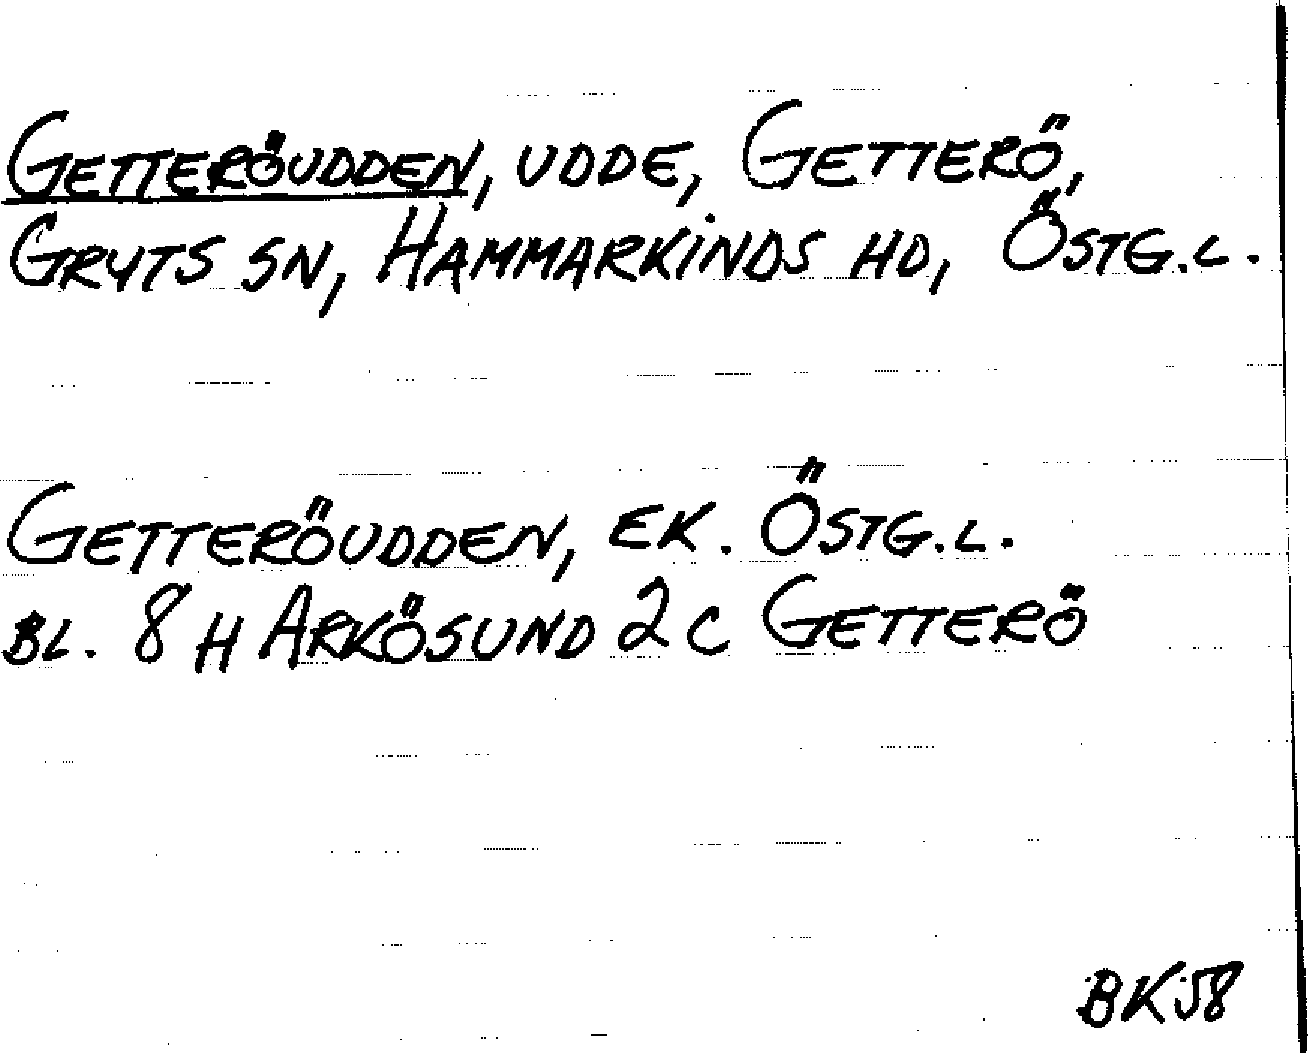 GETTERÖUDDEN, UDDE, GETTERÖ,
GRYTS SN, HAMMARKINDS HD, ÖSTG.L.
GETTERÖUDDEN, EK. ÖSTG.L.
BL. 8 H ARKÖSUND 2 C GETTERÖ
BK58